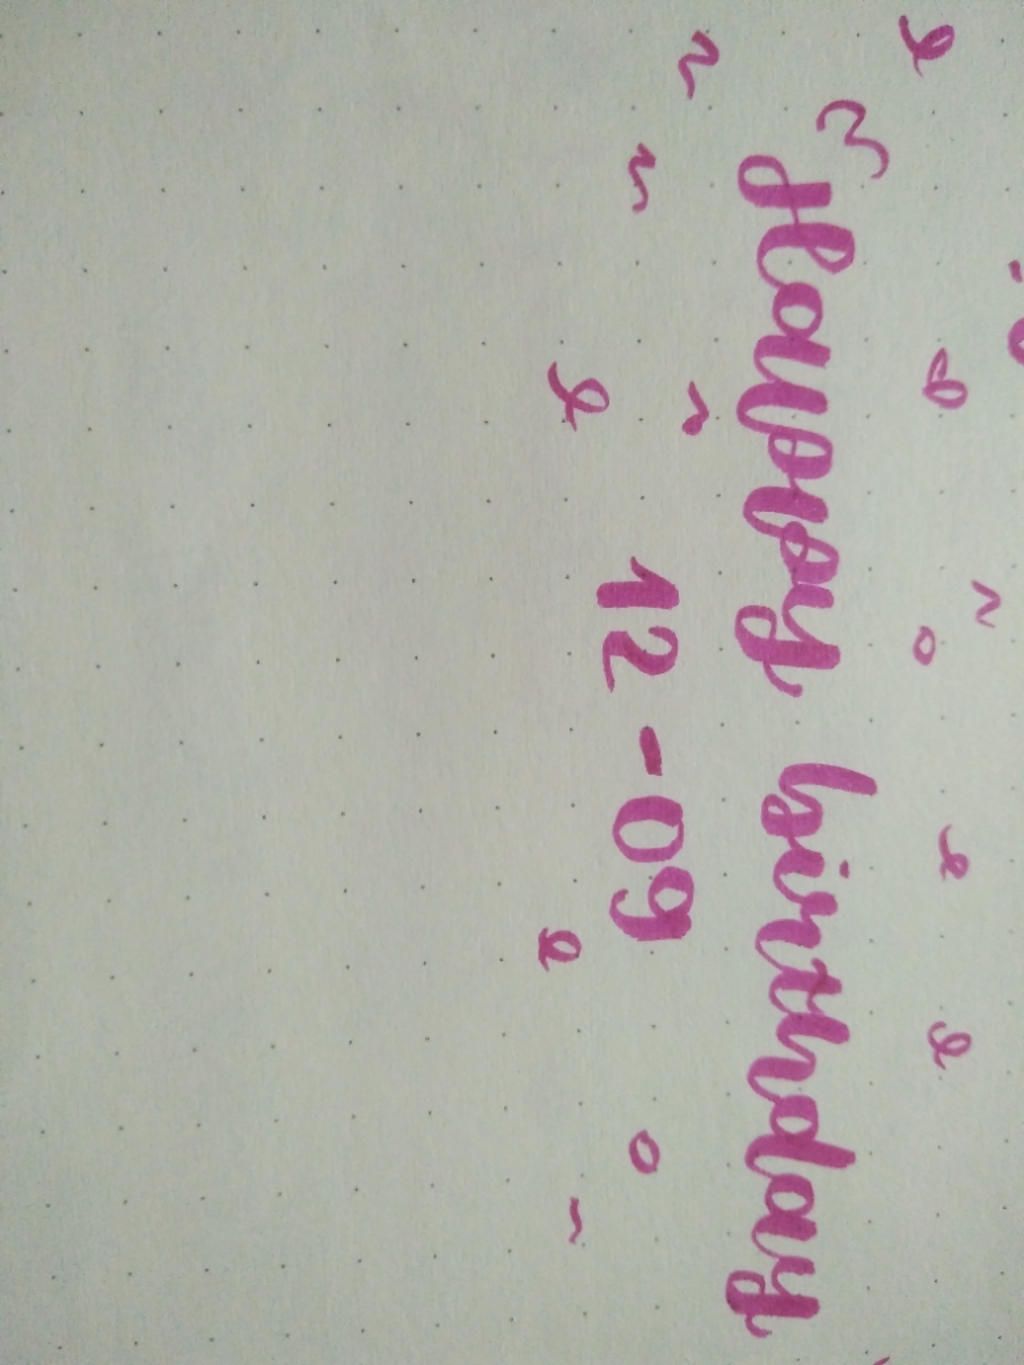 Happy birthday
12-09